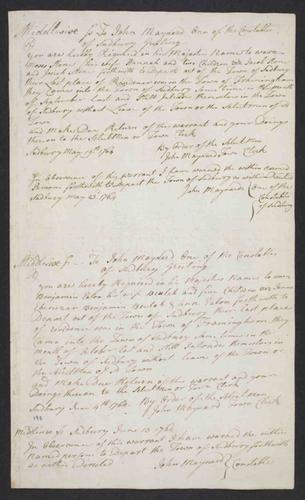 Middlesex ss To John Maynard One of the Constables
of Sudbury Greeting
You are hereby Required in his Majestys Name to warn
Moses Stone His wife Hannah and two Children viz Jacob Stone
and Josiah Stone forthwith to Depart out of the Town of Sudbury
their last place of Residence was in the Town of Framingham
they Came into the Town of Sudbury Some time in the month
of September Last and Still Intrudes themselves in the Town
of Sudbury without Leave of the Town or the Selectmen of sd
Town
and Make Due Return of this warrant and your Doings
thereon to the Selectmen or Town Clerk
Sudbury May 19th 1764
By Order of the Selectmen
John Maynard Town Clerk
In Observence of this warrant I have warned the within named
Persons forthwith to Depart the Town of Sudbury as within Directed
Sudbury May 23 1764
John Maynard One of the
Constables
of Sudbury
Middlesex ss To John Maynard One of the Constables
of Sudbury Greeting
you are hereby Required in his Majestys Name to warn
Benjamin Eaton his wife Beulah and two Children viz
Benjamin Beulah & Ann Eaton forthwith to
Depart out of the Town of Sudbury their Last place
of residence was in the Town of Framingham they
Came into the Town of Sudbury Some time in the
month of and Still Intrudes themselves in
the Town of Sudbury without Leave of the Town or
the Selectmen of sd Town
and Make Due Return of this warrant and your
Doings thereon to the Selectmen or Town Clerk
Sudbury June 4th 1764 By Order of the Selectmen
John Maynard Town Clerk
Middlesex ss Sudbury June 13 1764
In Observence of this warrant I have warned the within
Named persons to Depart the Town of Sudbury forthwith
as within Directed
John Maynard Constable